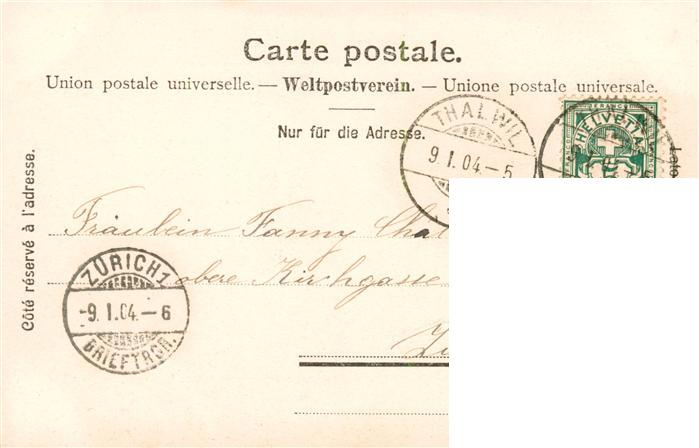 Carte postale.
Union postale universelle. — Weltpostverein. — Unione postale universale.
Nur für die Adresse.
Côté réservé à l'adresse.
THALWIL
9. I. 04. – 5
HELVETIA
Fräulein Fanny
obere Kirchgasse
ZÜRICH 1
-9. I. 04. – 6
BRIEFTRGR.